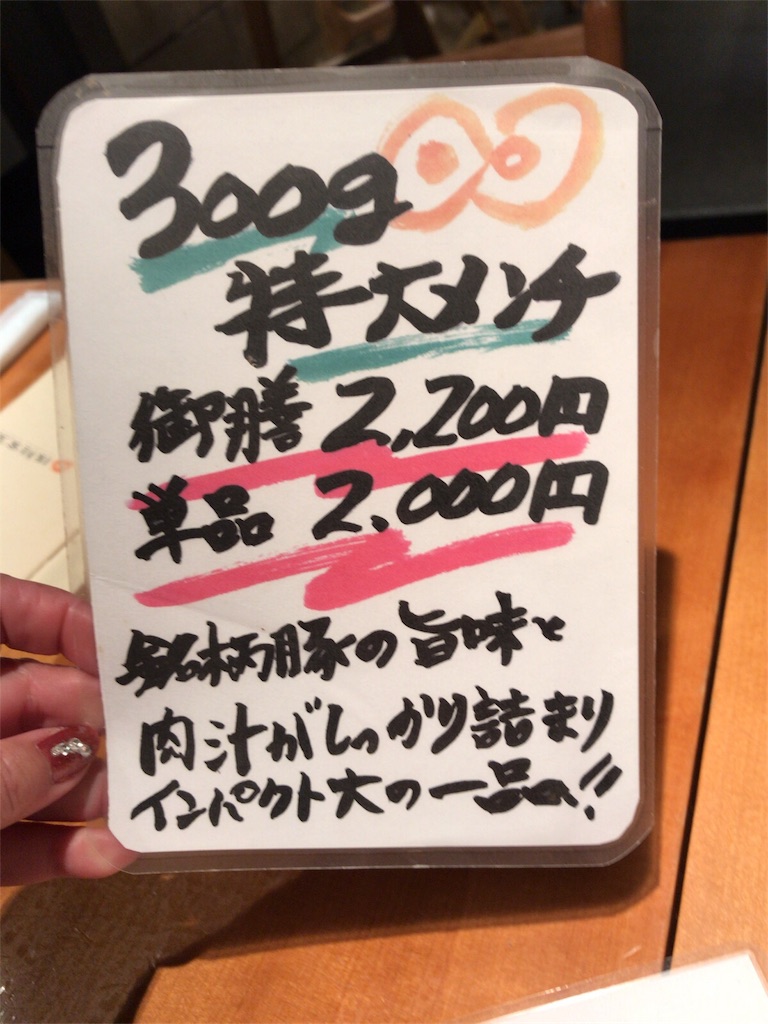 300g
特大メンチ
御膳 2,200円
単品 2.000円
銘柄豚の旨味と
肉汁がしっかり詰まり
インパクト大の一品!!